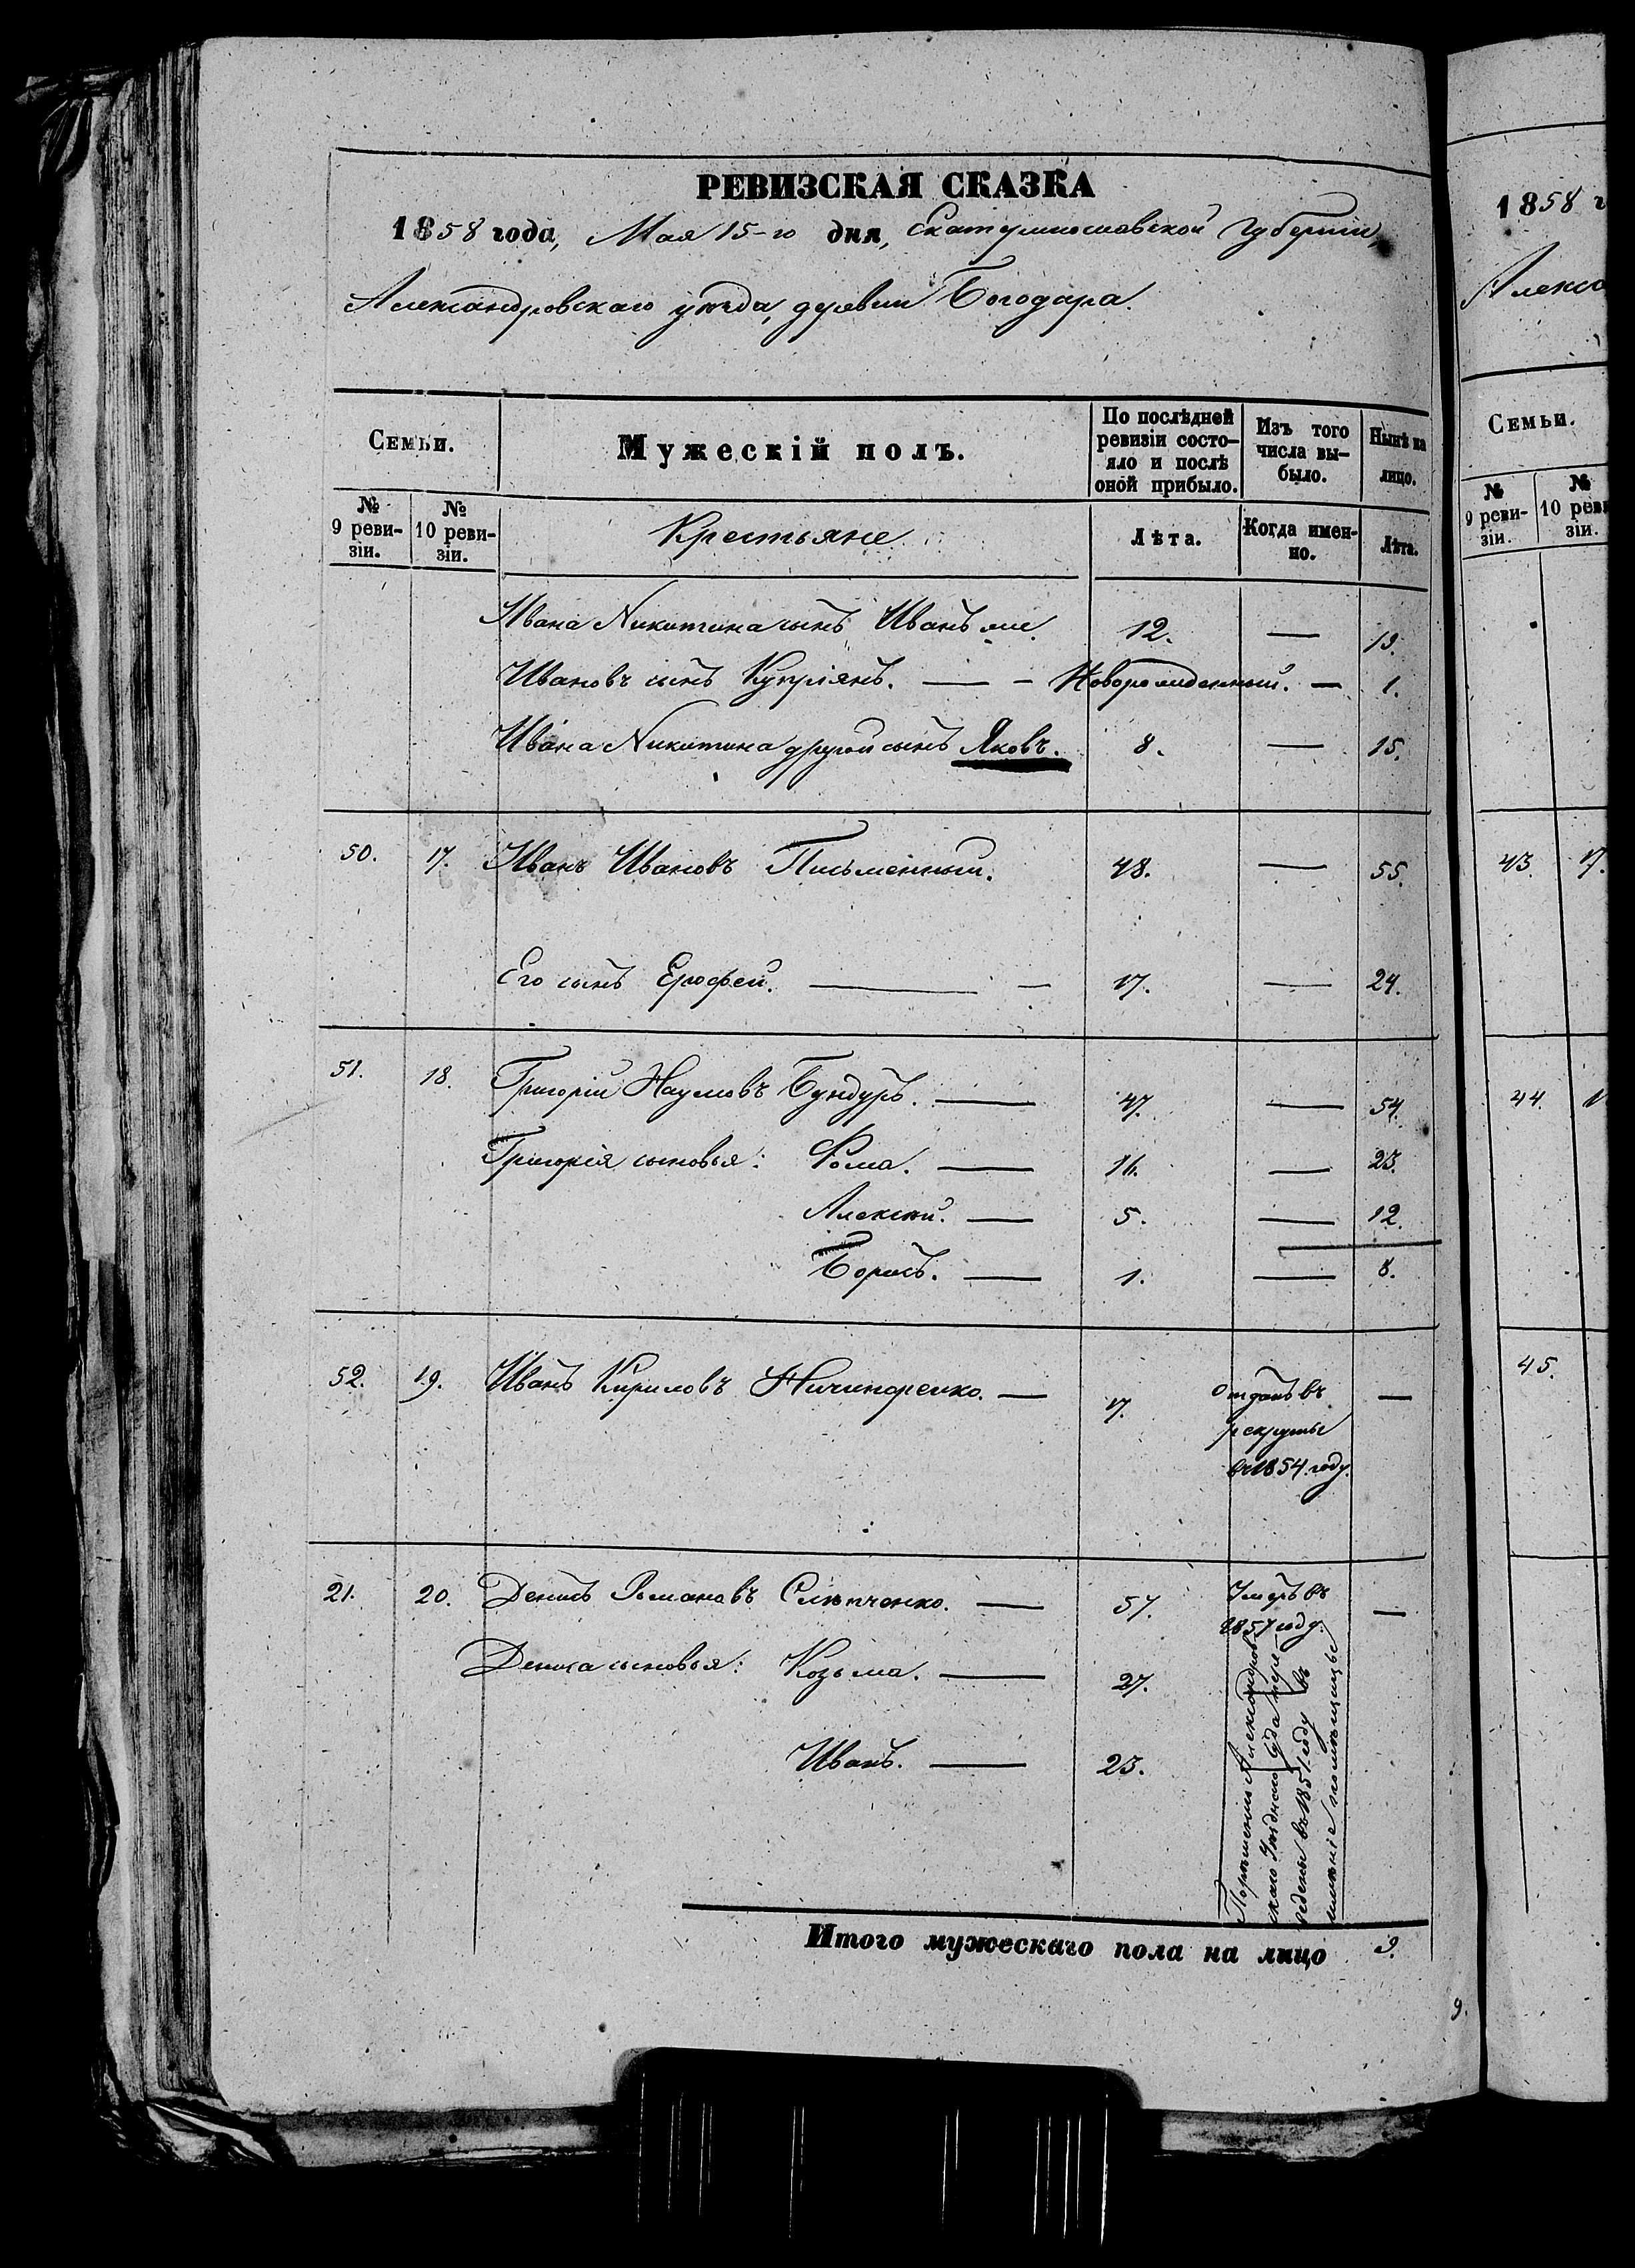 РЕВИЗСКАЯ СКАЗКА
1858 года, Мая 15-го дня, Екатеринославской Губернии,
Александровскаго уѣзда, деревни Богодара.
Семьи.
Мужескій полъ.
По послѣдней ревизіи состо-яло и послѣ оной прибыло.
Изъ того числа вы-было.
Нынѣ на лицо.
№ 9 реви-зіи.
№ 10 реви-зіи.
Крестьяне
Лѣта.
Когда имен-но.
Лѣта.
Ивана Никитина сынъ Иванъ 12. — 19.
Ивановъ сынъ Купріянъ. — — Новорожденный. — 1.
Ивана Никитина другой сынъ Яковъ. 8. — 15.
50. 17. Иванъ Ивановъ Письменный. 48. — 55.
Его сынъ Ерофей. — — 17. — 24.
51. 18. Григорій Наумовъ Бундуръ. — 47. — 54.
Григорія сыновья: Фома. — 16. — 23.
Алексѣй. — 5. — 12.
Борисъ. — 1. — 8.
52. 19. Иванъ Кириловъ Ничипоренко. — 17. Отданъ въ —
рекруты
въ 1854 году.
21. 20. Денисъ Романовъ Слѣпченко. — 57. Умеръ въ —
1857 году.
Дениса сыновья: Козьма. — 27.
Иванъ. — 23.
По рѣшенію Александров
скаго Уѣзднаго Суда пере-
ведены въ 1851 году въ
имѣніе помѣщицы
Итого мужескаго пола на лицо 9.
9.
1858 г
Алекса
Семьи.
№ 9 реви-зіи.
№ 10 реви зіи.
43. 17.
44. 1
45.